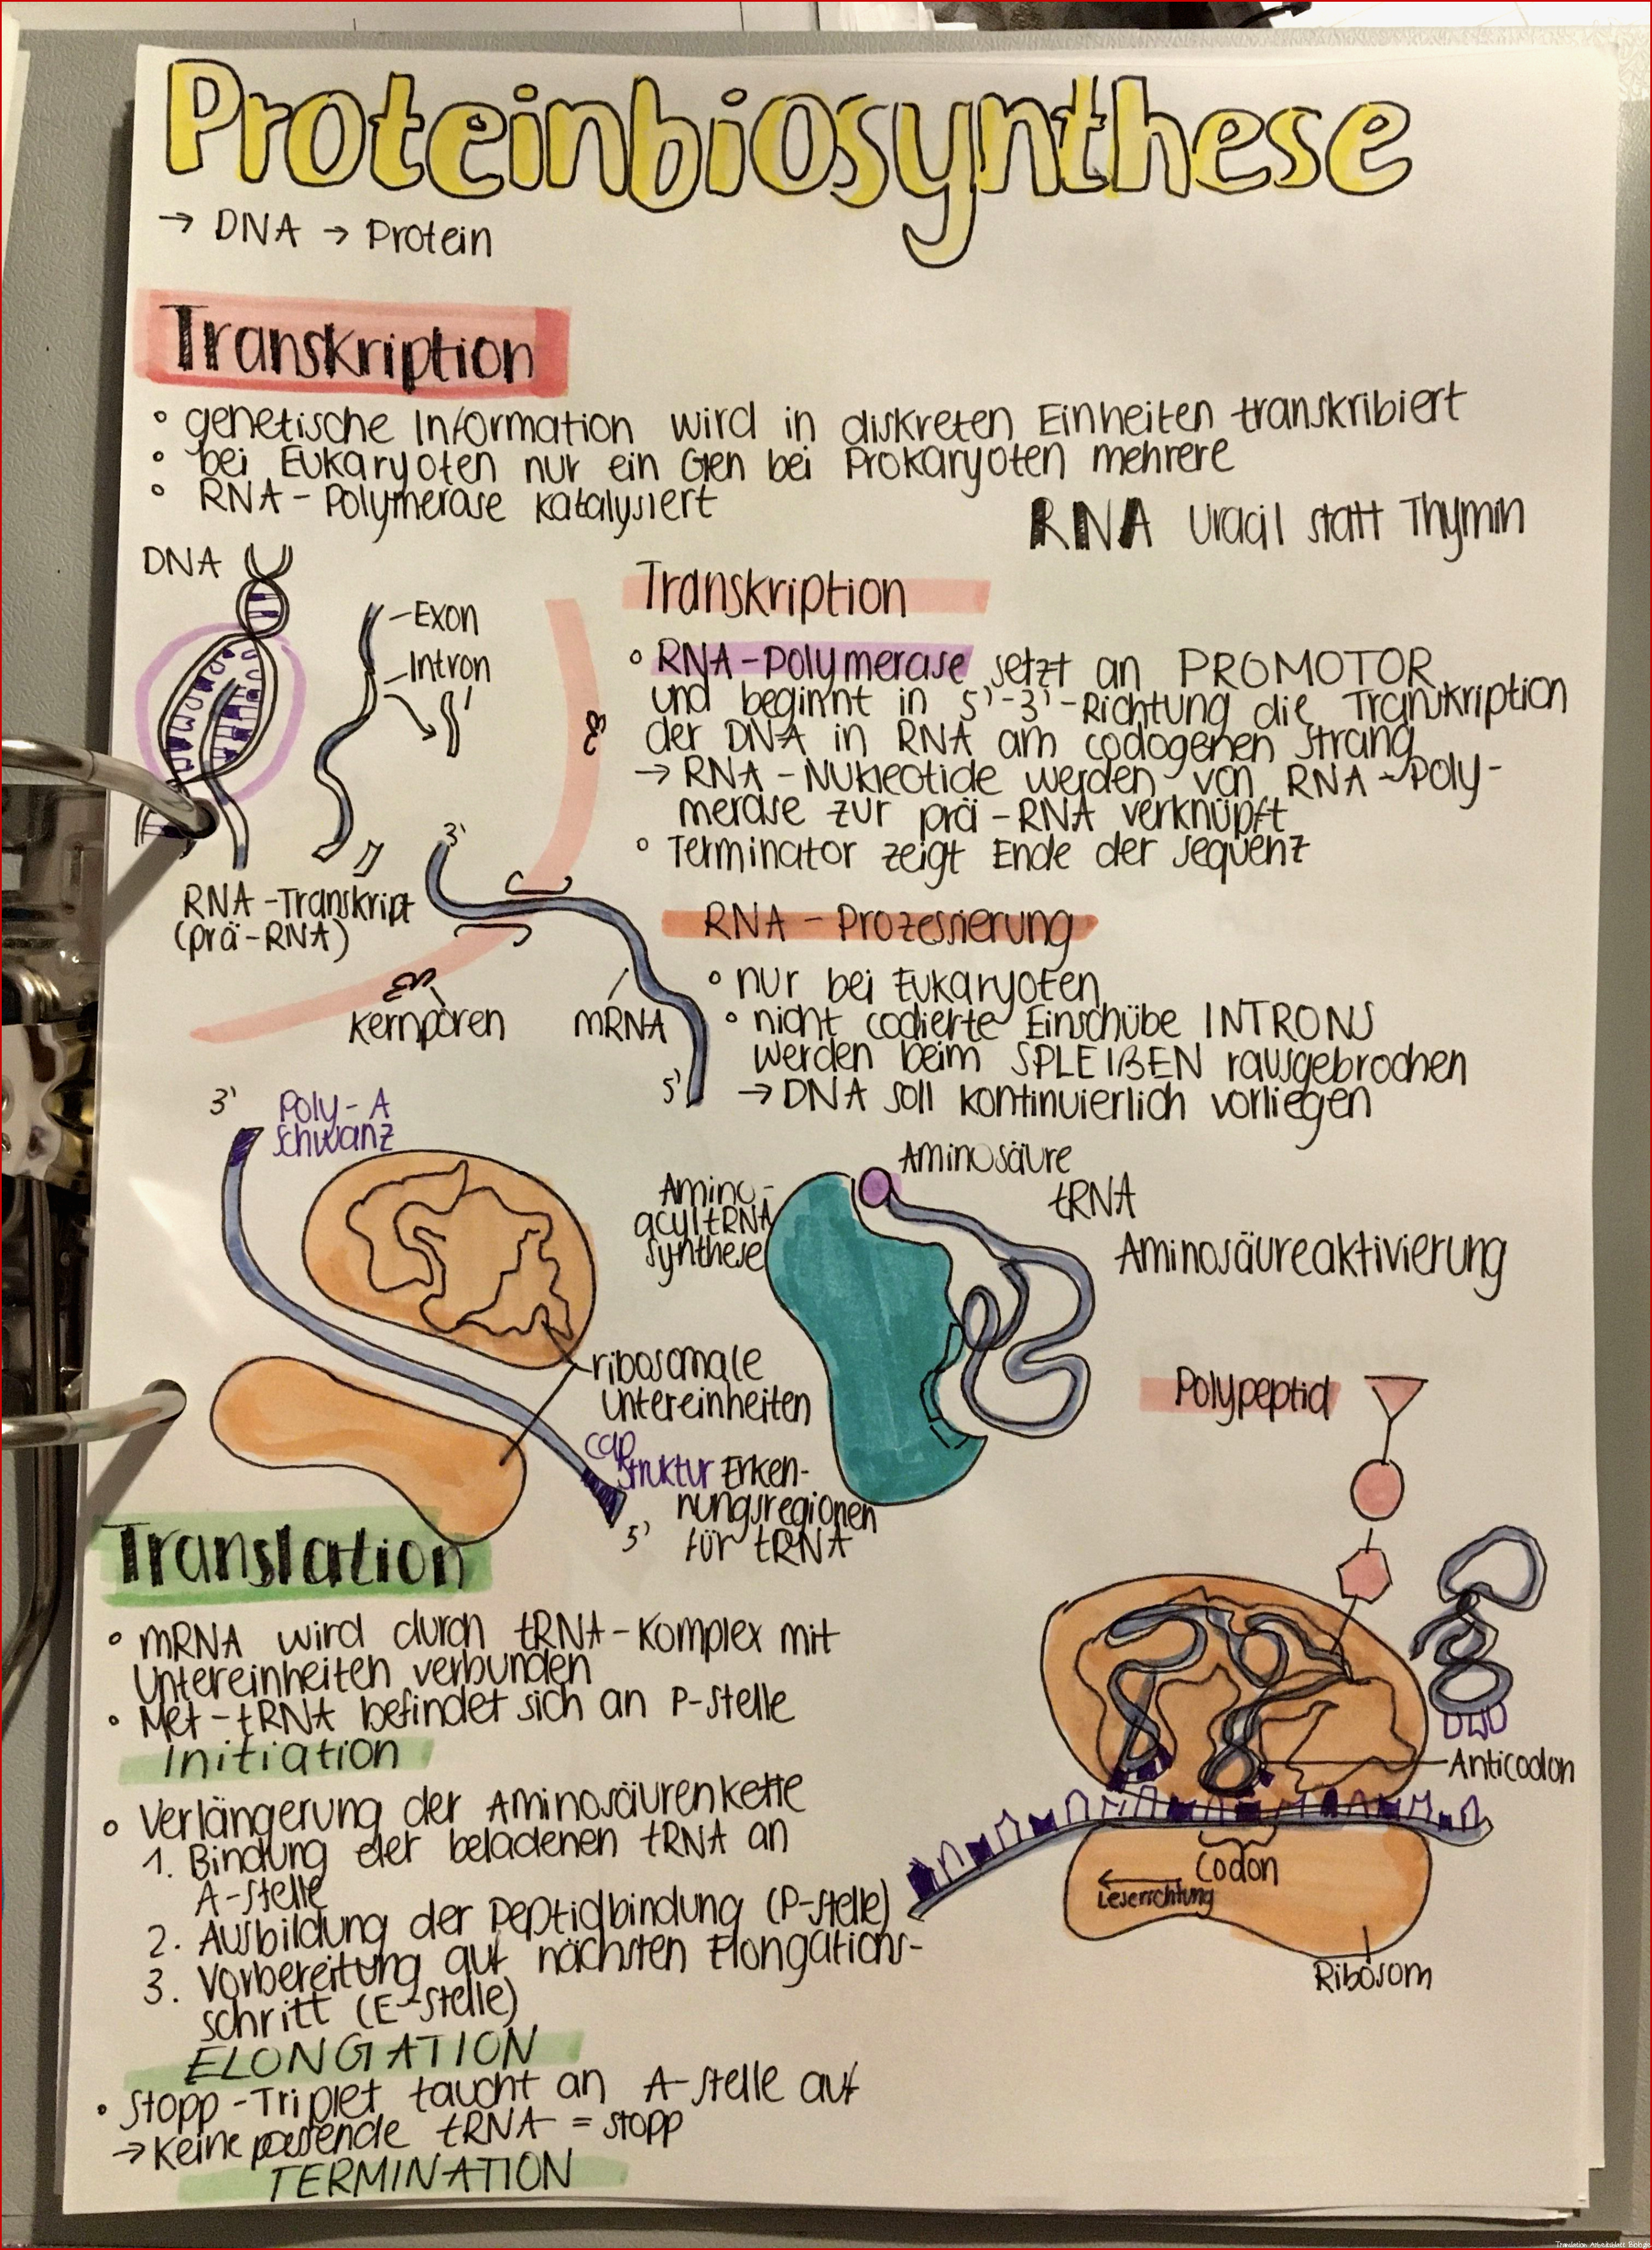 Proteinbiosynthese
→ DNA → Protein
Transkription
° genetische Information wird in diskreten Einheiten transkribiert
° bei Eukaryoten nur ein Gen bei Prokaryoten mehrere
° RNA-Polymerase katalysiert
RNA Uracil statt Thymin
DNA
Exon
Intron
RNA-Transkript
(prä-RNA)
Transkription
° RNA-Polymerase setzt an PROMOTOR
und beginnt in 5'-3'-Richtung die Transkription
der DNA in RNA am codogenen Strang
→ RNA-Nukleotide werden von RNA-Poly-
merase zur prä-RNA verknüpft
° Terminator zeigt Ende der Sequenz
3'
Kernporen
mRNA
5'
RNA-Prozessierung
° nur bei Eukaryoten
° nicht codierte Einschübe INTRONS
werden beim SPLEIßEN rausgebrochen
→ DNA soll kontinuierlich vorliegen
3'
Poly-A
Schwanz
ribosomale
Untereinheiten
Cap
Struktur
5'
Amino-
acyltRNA
synthese
Aminosäure
tRNA
Aminosäureaktivierung
Erken-
nungsregionen
für tRNA
Polypeptid
Translation
° mRNA wird durch tRNA-Komplex mit
Untereinheiten verbunden
• Met-tRNA befindet sich an P-Stelle
Initiation
° Verlängerung der Aminosäurenkette
1. Bindung der beladenen tRNA an
A-Stelle
2. Ausbildung der Peptidbindung (P-Stelle)
3. Vorbereitung auf nächsten Elongations-
schritt (E-Stelle)
ELONGATION
• Stopp-Triplet taucht an A-Stelle auf
→ Keine passende tRNA = stopp
TERMINATION
Anticodon
Codon
Leserichtung
Ribosom
Translation Arbeitsblatt Biologie